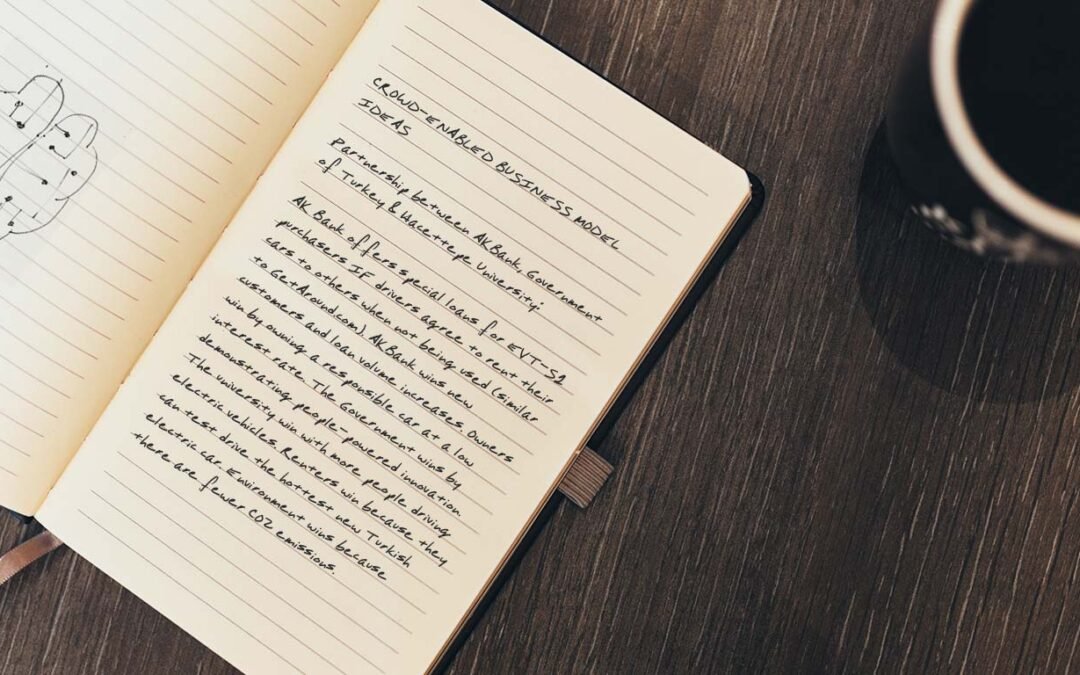 CROWD-ENABLED BUSINESS MODEL
IDEAS
Partnership between AKBank, Government
of Turkey & Hacettepe University:
AK Bank offers special loans for EVT-S1
purchasers IF drivers agree to rent their
cars to others when not being used (similar
to GetAround.com). AKBank wins new
customers and loan volume increases. Owners
win by owning a responsible car at a low
interest rate. The Government wins by
demonstrating people-powered innovation.
The university win with more people driving
electric vehicles. Renters win because they
can test drive the hottest new Turkish
electric car. Environment wins because
there are fewer CO2 emissions.